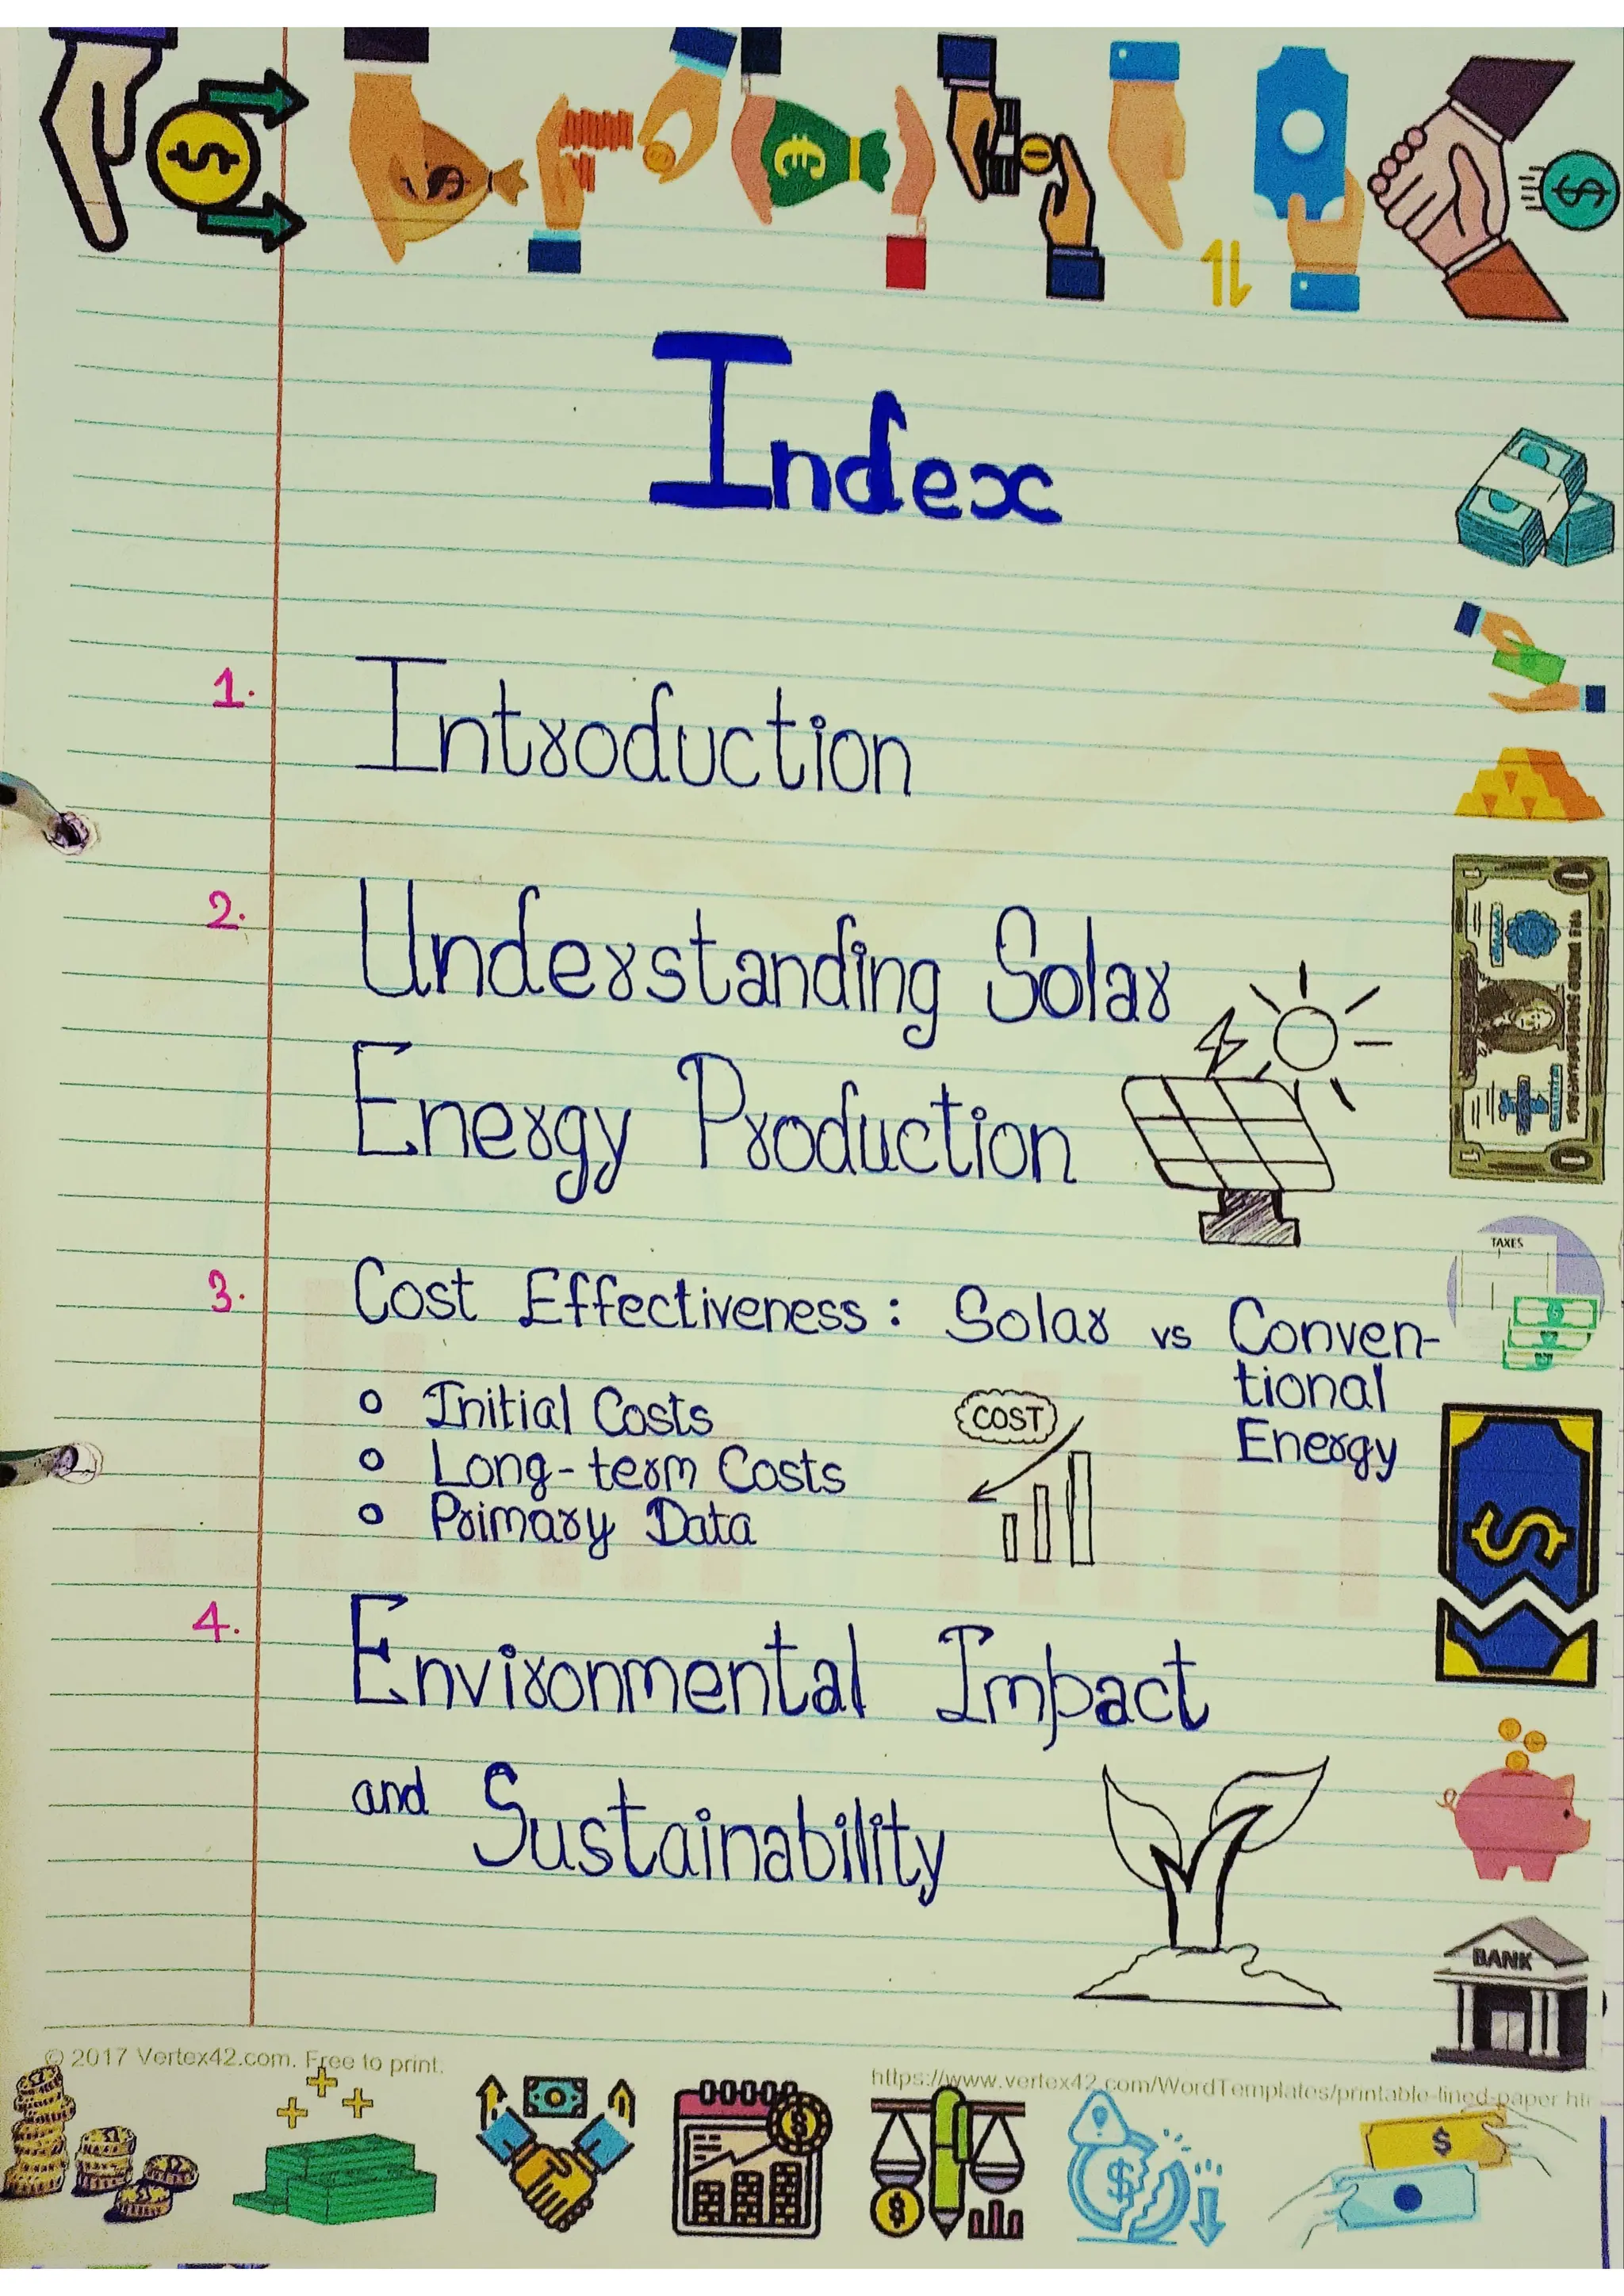 Index
1. Introduction
2. Understanding Solar
Energy Production
3. Cost Effectiveness : Solar vs Conven-
tional
Energy
o Initial Costs
o Long-term Costs
o Primary Data
COST
4. Environmental Impact
and Sustainability
TAXES
BANK
© 2017 Vertex42.com. Free to print.
https://www.vertex42.com/WordTemplates/printable-lined-paper.ht